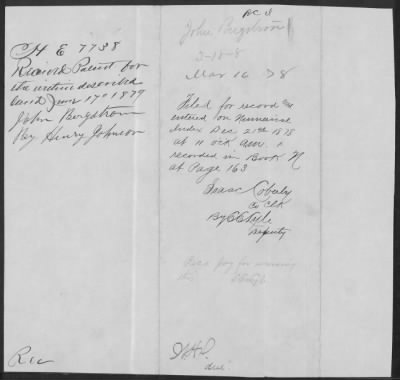 H E 7738
Received Patent for
the within described
land Jany 17th 1879
John Bergstrom
By Henry Johnson
Rec
John Bergstrom
3-18-8
Mar 16 78
Filed for record and
entered on Numerical
Index Dec 21st 1878
at 11 ock am. &
recorded in Book N
at Page 163
Isaac Coberly
Co Clk
By
Deputy
Recd pay for